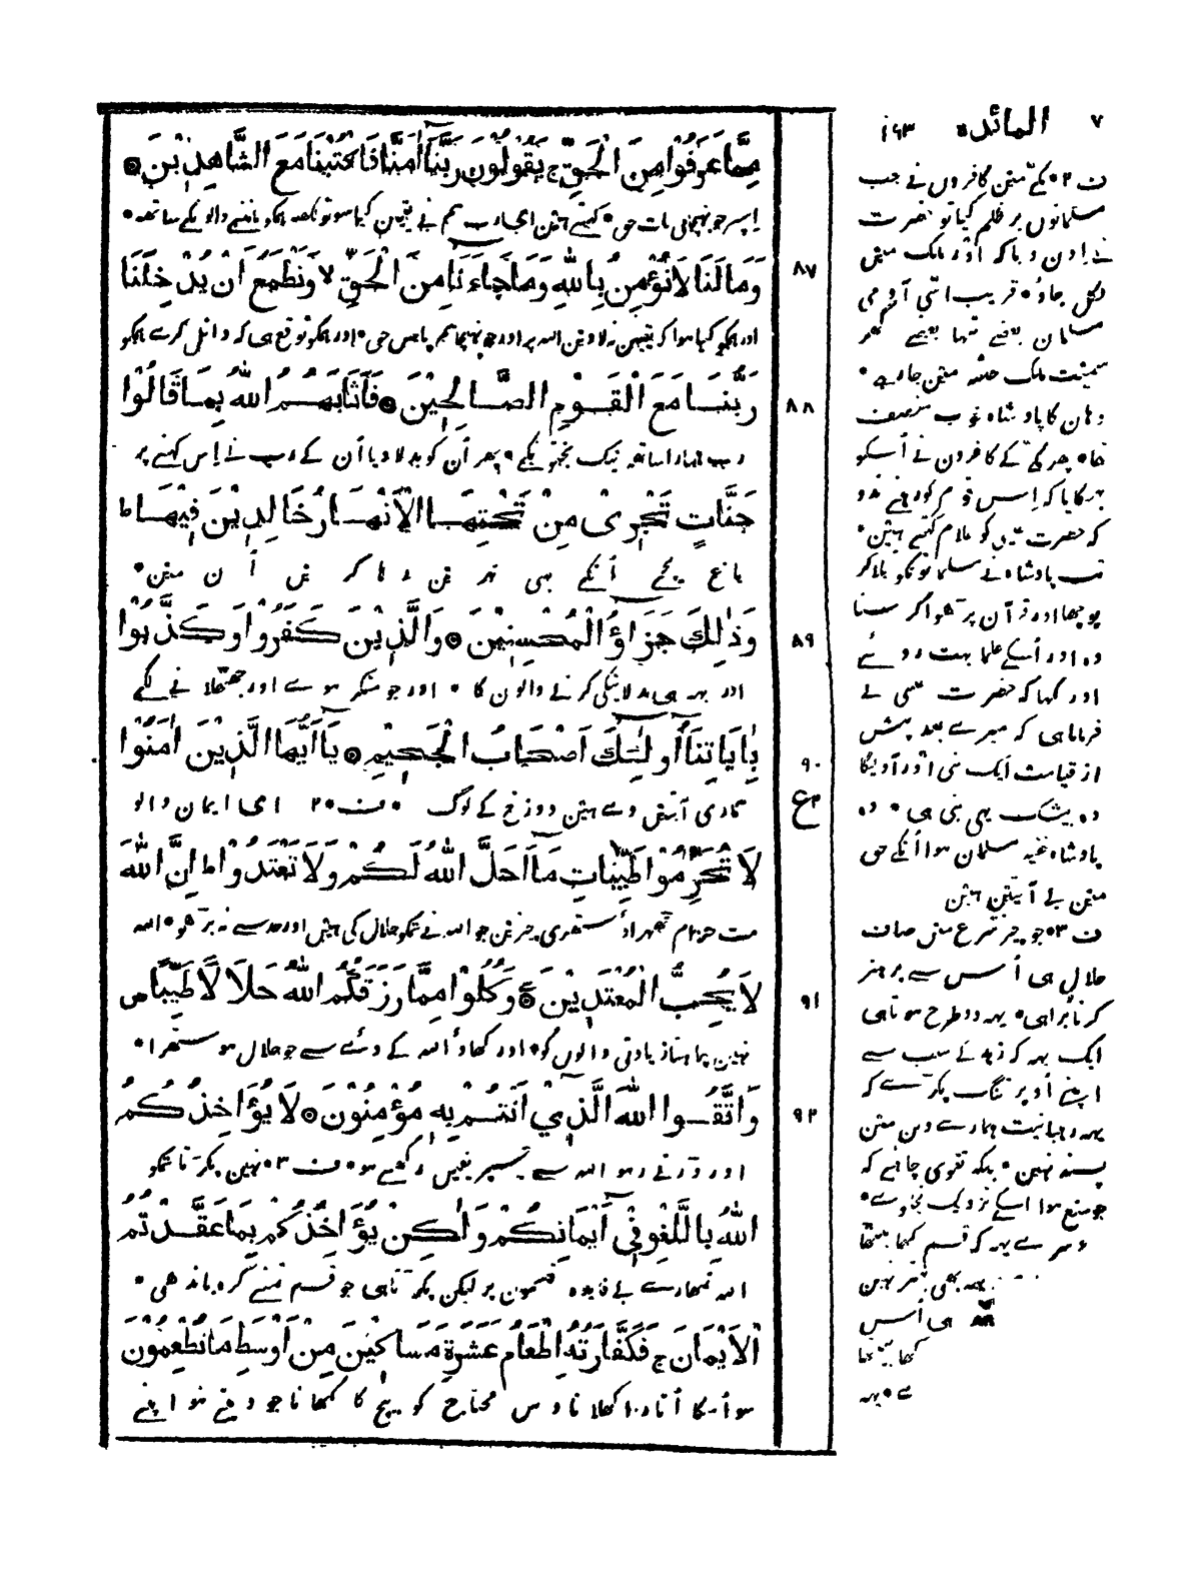 ۷ المائدہ ۱۶۳
مِمَّا عَرَفُوْا مِنَ الْحَقِّ ج يَقُوْلُوْنَ رَبَّنَآ اٰمَنَّا فَاكْتُبْنَا مَعَ الشَّاهِدِيْنَ ۝
۸۷ وَمَا لَنَا لَا نُؤْمِنُ بِاللّٰهِ وَمَا جَآءَنَا مِنَ الْحَقِّ لا وَنَطْمَعُ اَنْ يُّدْخِلَنَا
اور ہمکو کیا ہوا کہ یقین نہ لاوین اللہ پر اور جو پہنچا ہم پاس حق • اور ہمکو توقع ہی کہ داخل کرے ہمکو
۸۸ رَبُّنَا مَعَ الْقَوْمِ الصَّالِحِيْنَ ۝ فَاَثَابَهُمُ اللّٰهُ بِمَا قَالُوْا
رب ہمارا ساتھ نیک بختونکے • پھر اُن کو بدلا دیا اُن کے رب نے اِس کہنے پر
جَنَّاتٍ تَجْرِيْ مِنْ تَحْتِهَا الْاَنْهَارُ خَالِدِيْنَ فِيْهَا ط
باغ نیچے اُنکے بہی نہرین رہا کرین اُن مین •
۸۹ وَذٰلِكَ جَزَآؤُ الْمُحْسِنِيْنَ ۝ وَالَّذِيْنَ كَفَرُوْا وَكَذَّبُوْا
اور یہہ ہی بدلا نیکی کرنے والون کا • اور جو منکر ہوے اور جھٹلانے لگے
۹۰ بِاٰيَاتِنَآ اُولٰٓئِكَ اَصْحَابُ الْجَحِيْمِ ۝ يَآ اَيُّهَا الَّذِيْنَ اٰمَنُوْا
ہماری آیتین وے ہین دوزخ کے لوگ • ف۲ • ای ایمان والو
لَا تُحَرِّمُوْا طَيِّبَاتِ مَآ اَحَلَّ اللّٰهُ لَكُمْ وَلَا تَعْتَدُوْا ط اِنَّ اللّٰهَ
مت حرام ٹھہراؤ ستھری چیزین جو اللہ نے تمکو حلال کی ہین اور حد سے نہ بڑھو • اللہ
۹۱ لَا يُحِبُّ الْمُعْتَدِيْنَ ۝ وَكُلُوْا مِمَّا رَزَقَكُمُ اللّٰهُ حَلَالًا طَيِّبًا ص
نہین چاہتا زیادتی والوں کو • اور کھاؤ اللہ کے دئے سے جو حلال ہو ستھرا •
۹۲ وَاتَّقُوا اللّٰهَ الَّذِيْٓ اَنْتُمْ بِهٖ مُؤْمِنُوْنَ ۝ لَا يُؤَاخِذُكُمُ
اور ڈرتے رہو اللہ سے جسپر یقین رکھتے ہو • ف۳ • نہین پکڑتا تمکو
اللّٰهُ بِاللَّغْوِ فِيْٓ اَيْمَانِكُمْ وَلٰكِنْ يُّؤَاخِذُكُمْ بِمَا عَقَّدْتُّمُ
اللہ تمھارے بے فایدہ قسمون پر لیکن پکڑتا ہی جو قسم تمنے گرہ باندھی •
الْاَيْمَانَ ج فَكَفَّارَتُهٗٓ اِطْعَامُ عَشَرَةِ مَسَاكِيْنَ مِنْ اَوْسَطِ مَا تُطْعِمُوْنَ
سو اُسکا اُتار کھلانا دس محتاج کو بیچ کا کھانا جو دیتے ہو اپنے
ف۲ • مکّے مین کافروں نے جب
مسلمانوں پر ظلم کیا تو حضرت
نے اذن دیا کہ اور ملک مین
نکل جاؤ • قریب اسّی آدمی
مسلمان بعضے تنہا بعضے گھر
سمیت ملک حبشہ مین جا رہے •
وہان کا پادشاہ خوب منصف
تھا • پھر مکّے کے کافرون نے اُسکو
بہکایا کہ اِس قوم کو رہنے ندو
کہ حضرت عیسیٰ کو غلام کہتے ہین •
تب پادشاہ نے مسلمانونکو بلاکر
پوچھا اور قرآن پڑھوا کر سنا
وہ اور اُسکے علما بہت روئے
اور کہا کہ حضرت عیسی نے
فرمایا ہی کہ میرے بعد پیش
از قیامت ایک نبی اور آویگا
وہ بیشک یہی نبی ہی • وہ
پادشاہ خفیہ مسلمان ہوا اُنکے حق
مین یے آیتین ہین
ف۳ • جو چیز شرع مین صاف
حلال ہی اُس سے پرہیز
کرنا بُرا ہی • یہہ دو طرح ہوتا ہی
ایک یہہ کہ زہد کے سبب سے
اپنے اُوپر تنگ پکڑے کہ
یہہ رہبانیت ہمارے دین مین
پسند نہین • بلکہ تقوی چاہئے کہ
جو منع ہوا اسکے نزدیک نجاوے •
دوسرے یہہ کہ قسم کھا بیٹھا
یہہ بھی بہتر نہین
ہی اُس
کھا بیٹھا